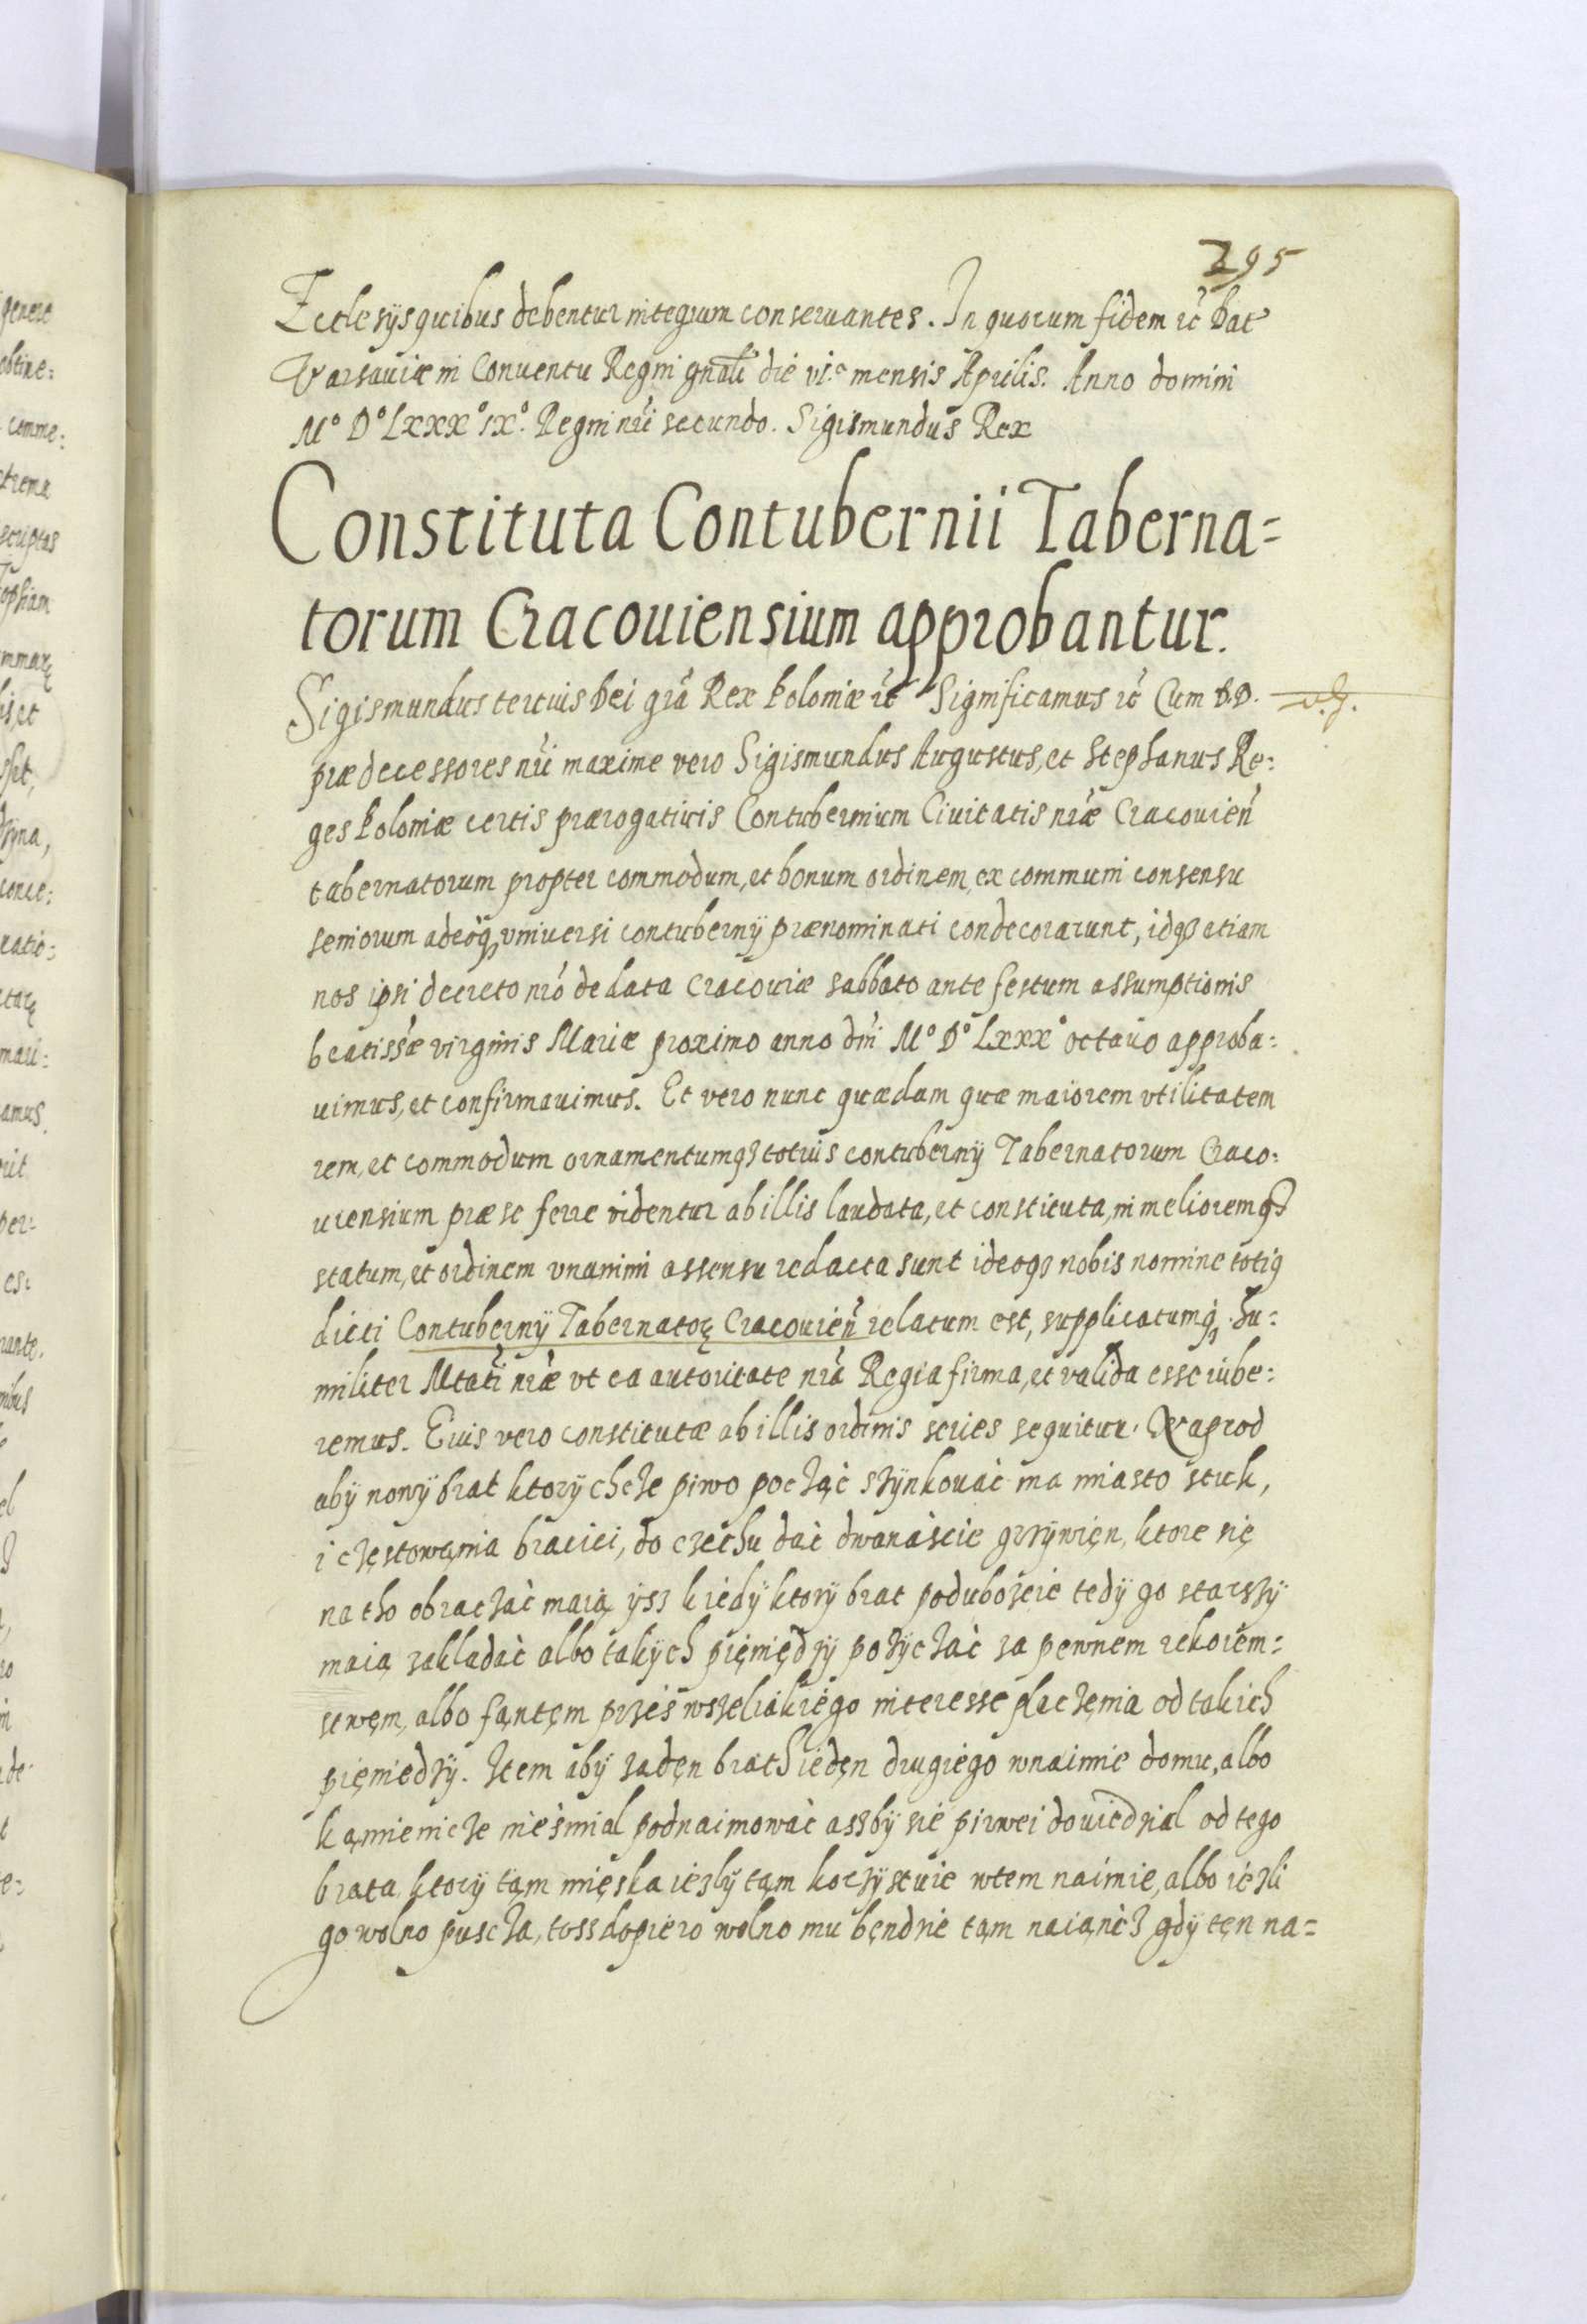 295
Ecclesÿs quibus debentur integrum conseruantes. In quorum fidem rc̃ Dat
Varsauiæ in Conuentu Regni gnãli die vi.ͣ mensis Aprilis. Anno domini
M° D° Lxxx° ix°. Regni nri̇ secundo. Sigismundus Rex
Constituta Contubernii Taberna=
torum Cracouiensium approbantur.
Sigismundus tertius Dei grã Rex Poloniæ rc̃ Significamus rc̃ Cum D.D.
prædecessores nri̇ maxime vero Sigismundus Augustus, et Stephanus Re:
ges Poloniæ certis prærogatiuis Contubernium Ciuitatis nræ Cracouień
tabernatorum propter commodum, et bonum ordinem, ex communi consensu
seniorum adeoq̨ vniuersi contubernÿ prænominati condecorarunt, idqȝ etiam
nos ipsi decreto nrõ de data Cracouiæ sabbato ante festum assumptionis
beatissæ virginis Mariæ proximo anno dm̃i M° D° Lxxx° octauo approba:
uimus, et confirmauimus. Et vero nunc quædam quæ maiorem vtilitatem
rem, et commodum ornamentumqȝ totius contubernÿ Tabernatorum Craco:
uiensium præ se ferre videntur ab illis laudata, et constituta, in melioremqȝ
statum, et ordinem vnanimi assensu redacta sunt ideoqȝ nobis nomine totiꝯ
dicti Contubernÿ Tabernatoꝝ Cracouień relatum est, supplicatumq̨ hu:
militer Mtati̇ nræ vt ea autoritate nrã Regia firma, et valida esse iube:
remus. Eius vero constitutæ ab illis ordinis series sequitur. Naprod
abÿ nowÿ brat ktorÿ chcze piwo począć szÿnkouać ma miasto stuk,
i częstowąnia braciei, do czechu dać dwanaście grzÿwięn, ktore się
natho obraczać maią ÿsz kiedÿ ktorÿ brat podubożeie tedÿ go starszÿ
maią zakladać albo takÿch pięniędzÿ pozÿczać za pewnem rekoiem:
stwęm, albo fąntęm prześ wszeliakiego interesse placzęnia od takich
pięniedzÿ. Item abÿ zadęn brath iedęn drugiego wnaimie domu, albo
kąmienicze nieśmial podnaimować aszbÿ sie pirwei douiedzial od tego
brata, ktorÿ tąm mięska ieslÿ tąm korzÿstuie wtem naimie, albo iezli
go wolno puscza, toss dopiero wolno mu bęndzie tąm naiąnćȝ gdÿ tęn na=